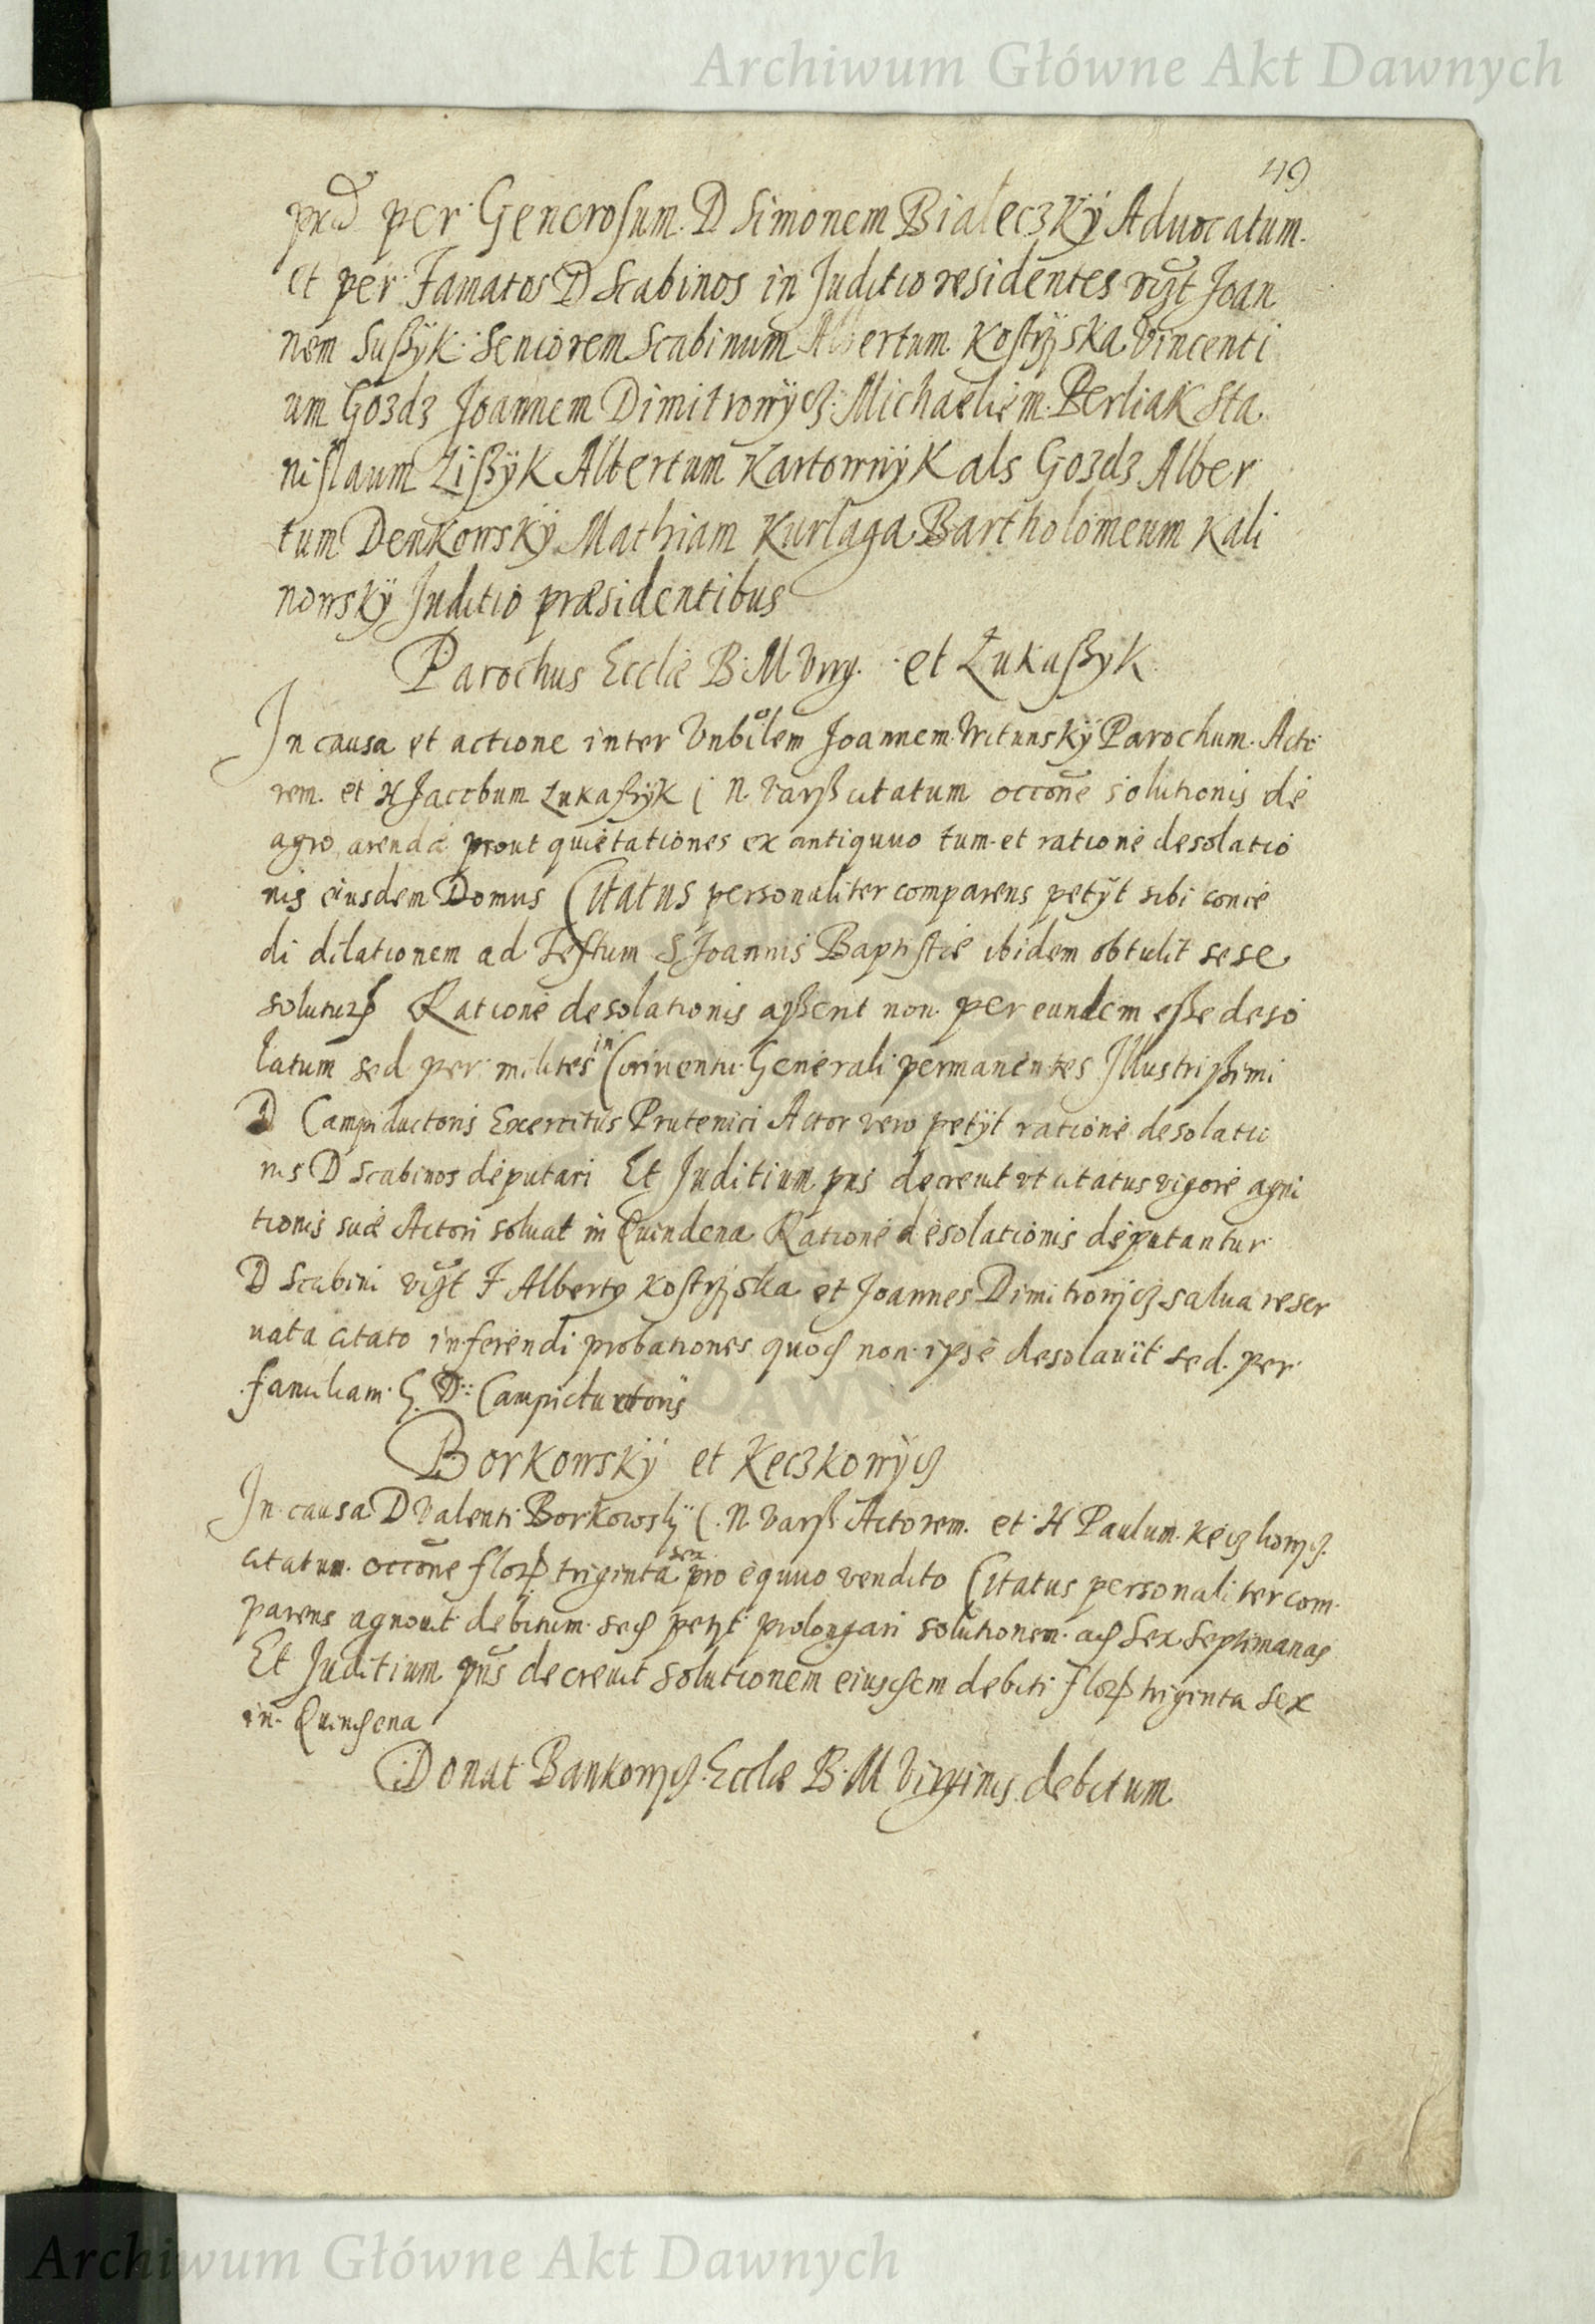 Archiwum Główne Akt Dawnych
49
prd per Generosum D Simonem Bialeczkÿ Advocatum.
et per Famatos D Scabinos in Juditio residentes vigt Joan
nem Sußÿk Seniorem Scabinum Albertum Kostrzÿska Vincenti
um Gozdz Joannem Dimitrowÿcz Michaelem Perliak Sta
nislaum Lißÿk Albertum Kartownÿk als Gozdz Alber
tum Denkowskÿ Mathiam Kurlaga Bartholomeum Kali
nowskÿ Juditio præsidentibus
Parochus Ecclæ B: M Vrg. et Łukaßÿk
In causa et actione inter Vnbilem Joannem Witunskÿ Parochum Acto
rem et H Jacobum Łukaßÿk C N Varß citatum occone solutionis de
agro arendæ prout quietationes ex antiquuo tum et ratione desolatio
nis eiusdem Domus Citatus personaliter comparens petÿt sibi conce
di dilationem ad Festum S Joannis Baptistæ ibidem obtulit sese
soluturum Ratione desolationis aßerit non per eundem eße deso
latum sed per milites in Conventu Generali permanentes Illustrißimi
D Campiductoris Exercitus Prutenici Actor vero petÿt ratione desolatio
nis D Scabinos deputari Et Juditium pns decrevit vt citatus vigore agni
tionis suæ Actori soluat in Quindena Ratione desolationis deputantur
D Scabini vigt F Albertus Kostrzÿska et Joannes Dimitrowÿcz salua reser
uata citato inferendi probationes quod non ipse desolauit sed per
familiam G. D: Campiductoris
Borkowskÿ et Keczkowÿcz
In causa D Valenti Borkowskÿ C. N Varß Actorem et H Paulum Keczkowÿcz
citatum occone flor triginta sex pro equuo vendito Citatus personaliter com
parens agnouit debitum sed petÿt prolongari solutionem ad Sex Septimanas
Et Juditium pns decreuit solutionem eiusdem debiti flor triginta sex
in Quindena
Donat Bankowÿcz Ecclæ B: M Virginis debitum
Archiwum Główne Akt Dawnych